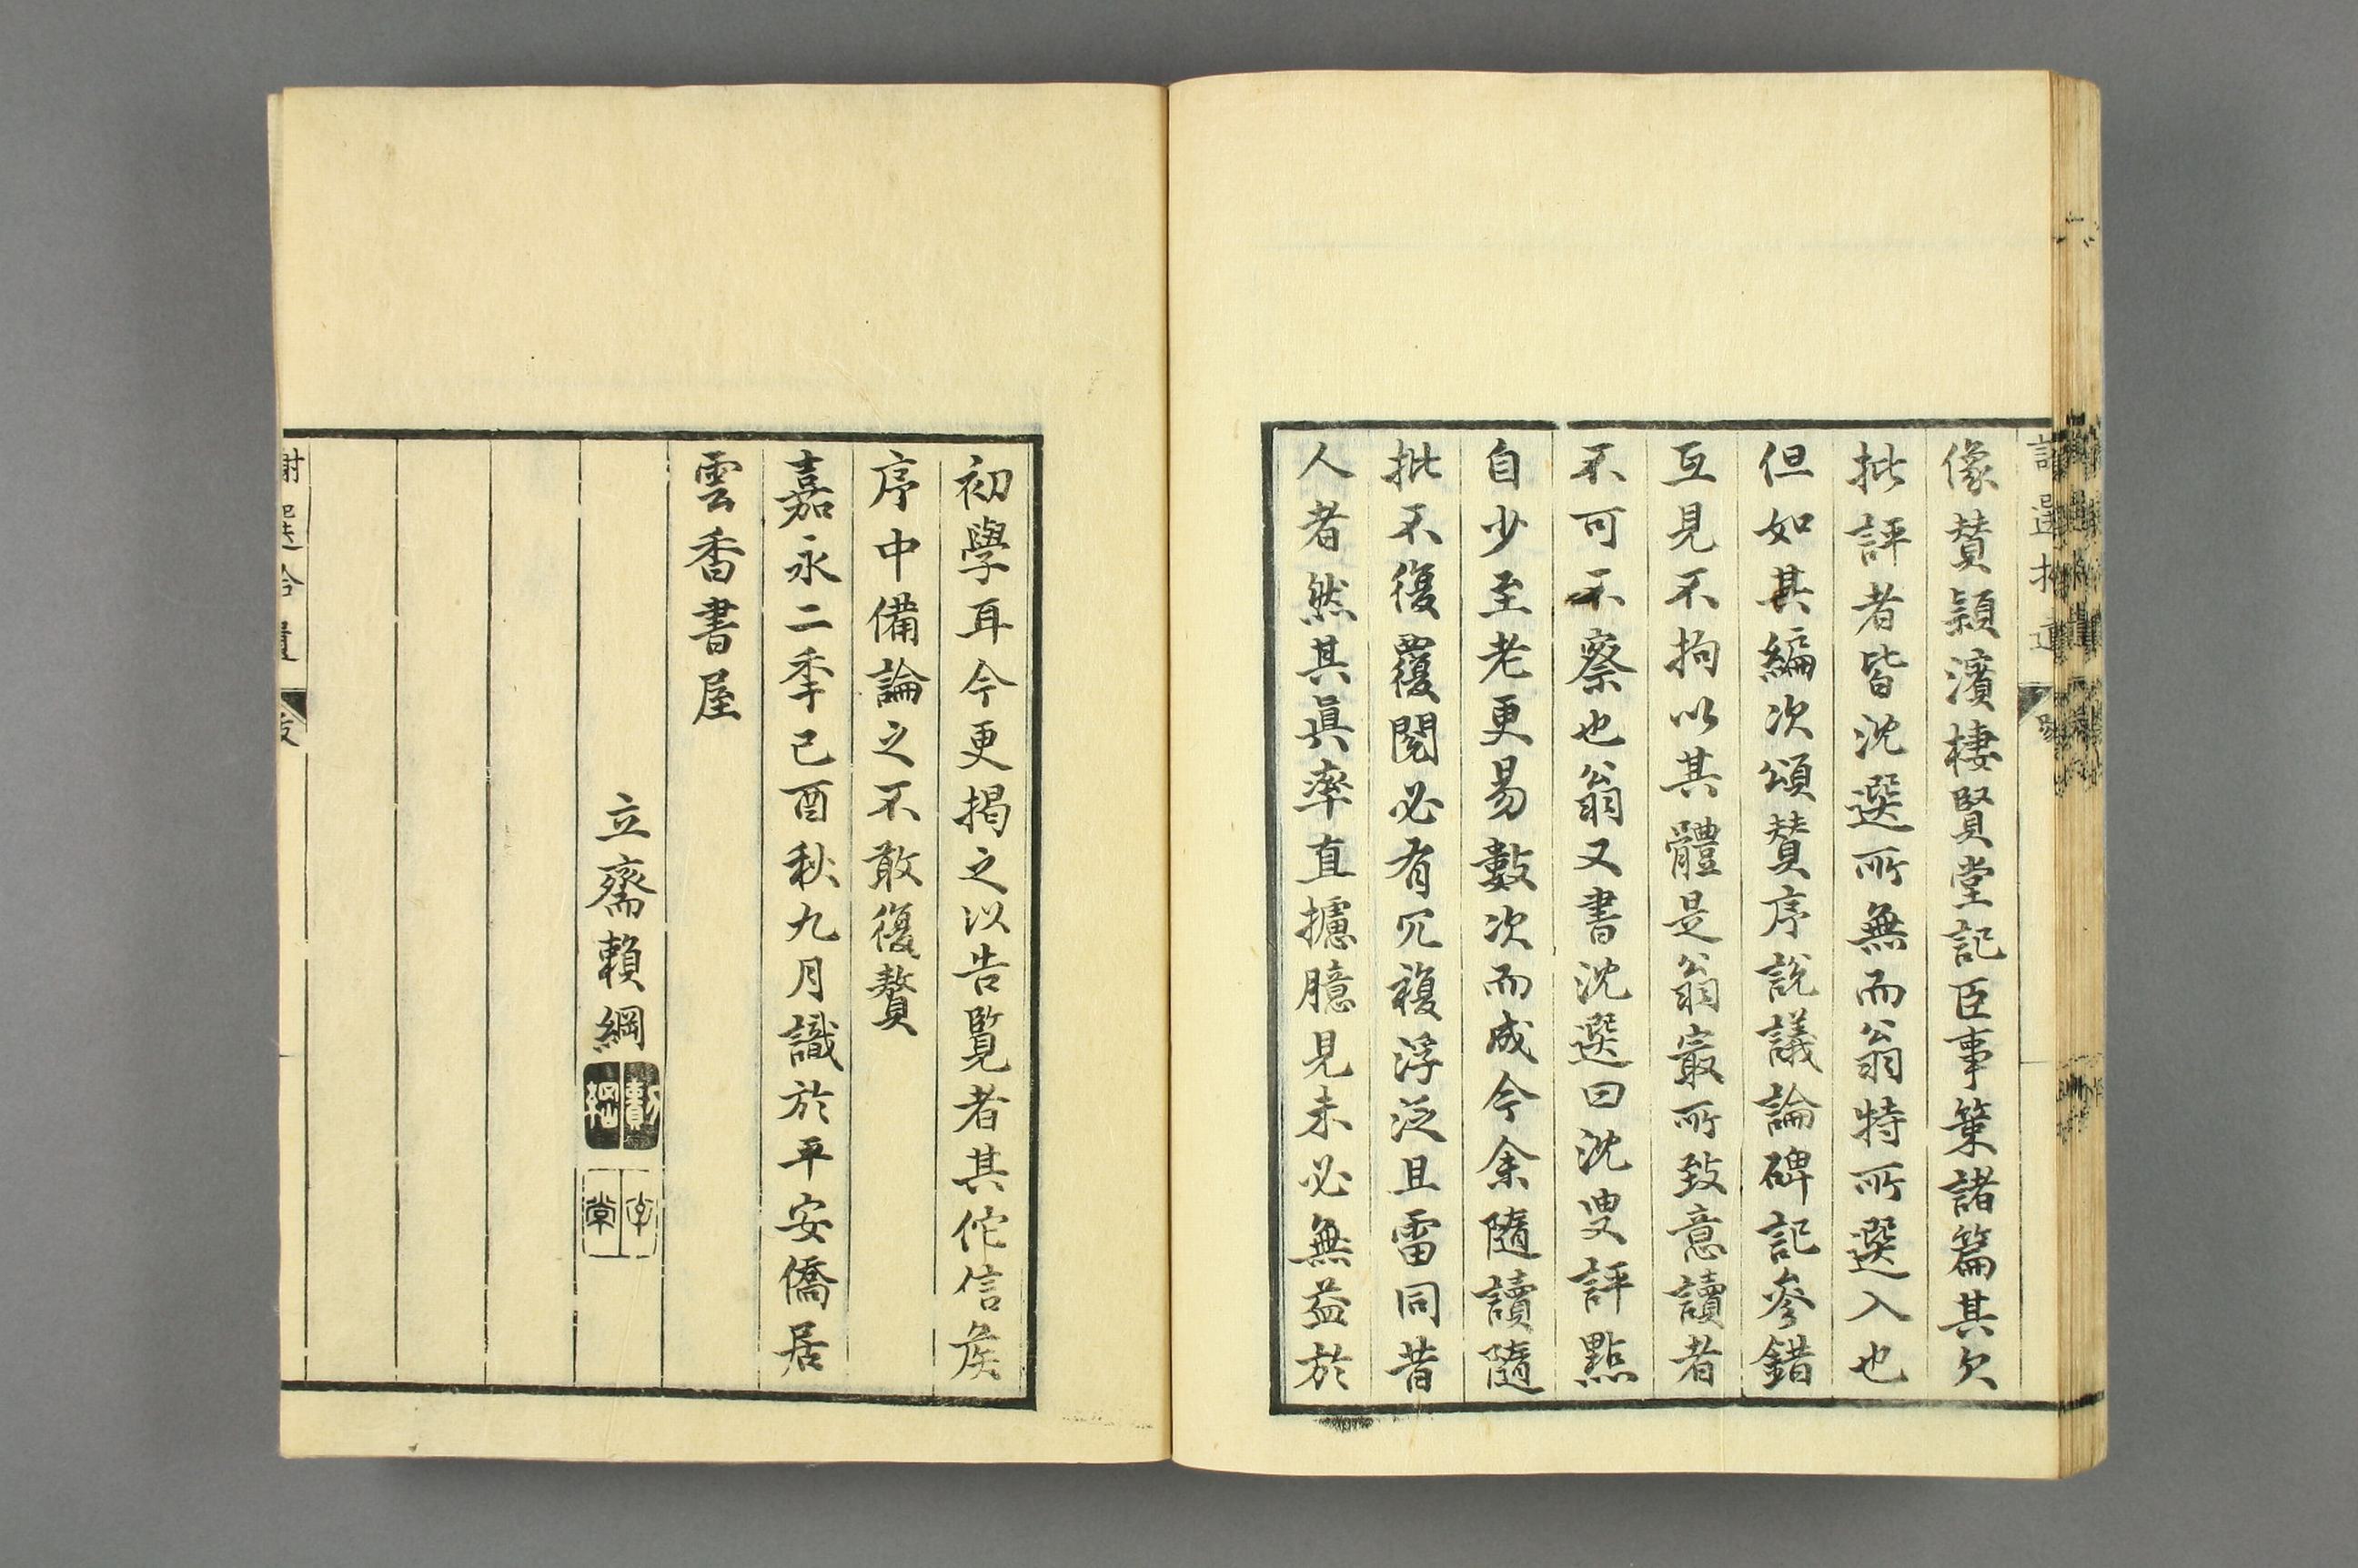 像贊潁濱棲賢堂記臣事策諸篇其欠
批評者皆沈選所無而翁特所選入也
但如其編次頌贊序說議論碑記參錯
互見不拘以其體是翁最所致意讀者
不可不察也翁又書沈選曰沈叟評點
自少至老更易數次而成今余隨讀隨
批不復覆閱必有冗複浮泛且雷同昔
人者然其眞率直攄臆見未必無益於
初學耳今更揭之以告覧者其佗信矦
序中備論之不敢復贅
嘉永二季己酉秋九月識於平安僑居
雲香書屋
立齋賴綱